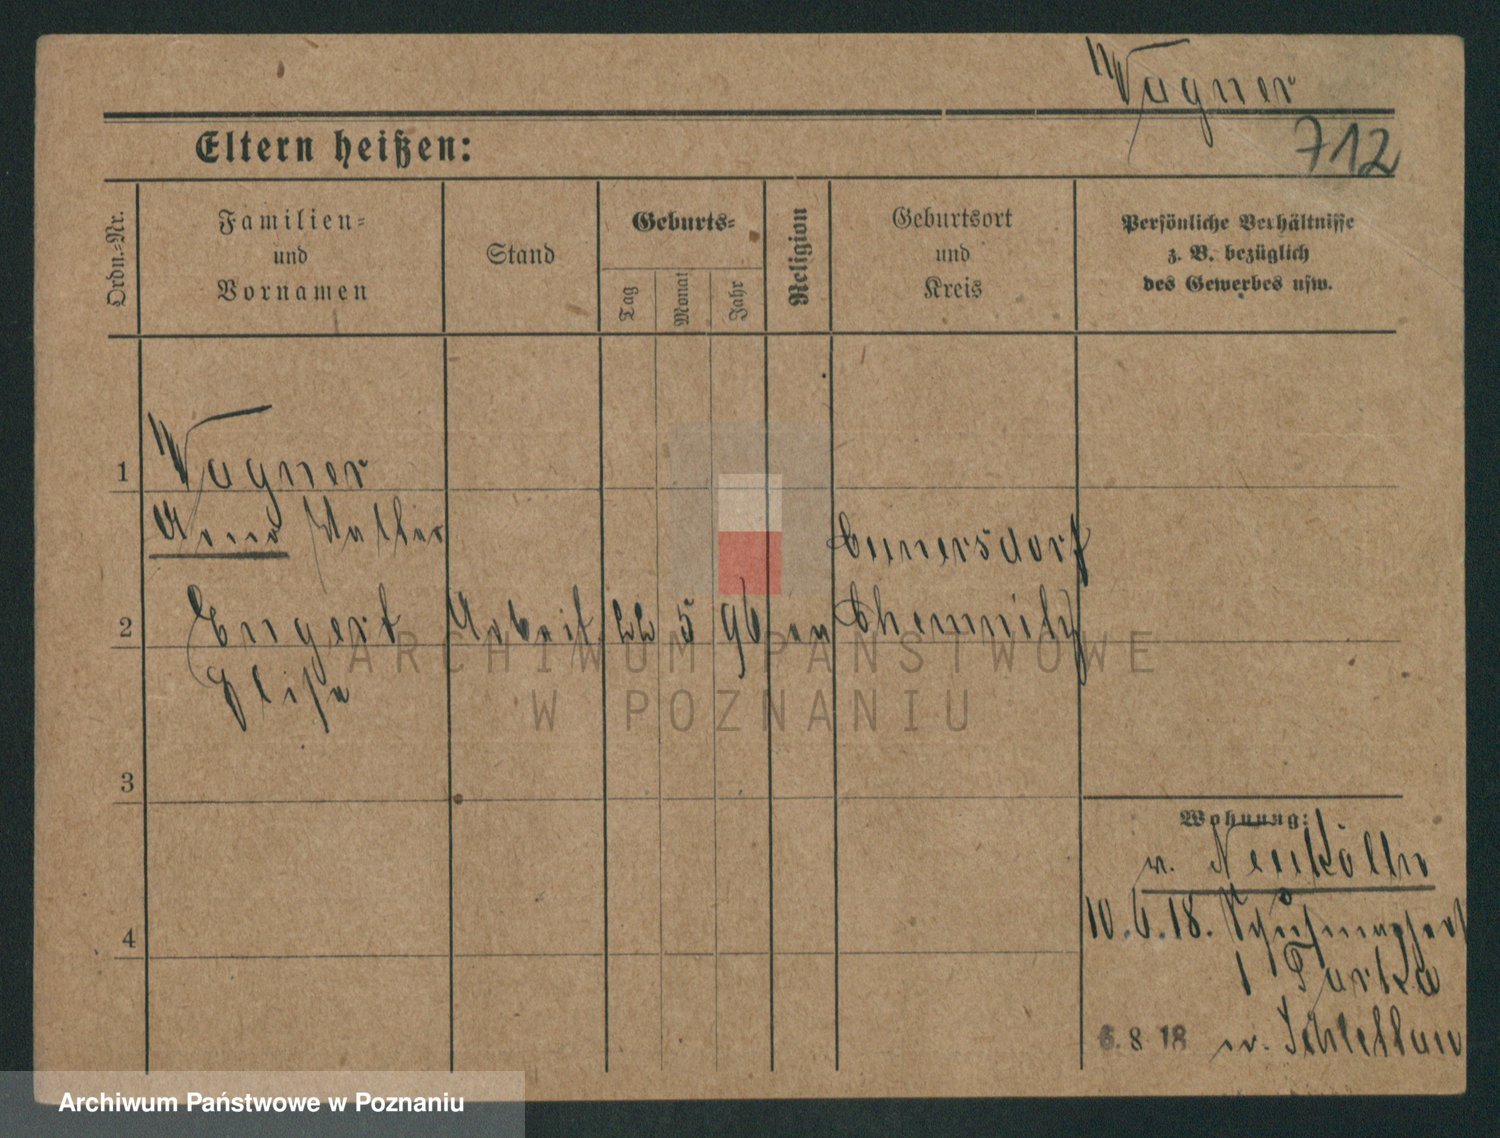 Wagner
712
Eltern heißen:
Ordn.-Nr.
Familien-
und
Vornamen
Stand
Geburts-
Tag
Monat
Jahr
Religion
Geburtsort
und
Kreis
Persönliche Verhältnisse
z. B. bezüglich
des Gewerbes usw.
1
Wagner
Arno Walter
Cunersdorf
2
Engert Arbeit 22 5 96 ev Chemnitz
Elise
ARCHIWUM PAŃSTWOWE
W POZNANIU
3
Wohnung:
v. Neukölln
4
10.6.18.
1
6.8 18
Archiwum Państwowe w Poznaniu